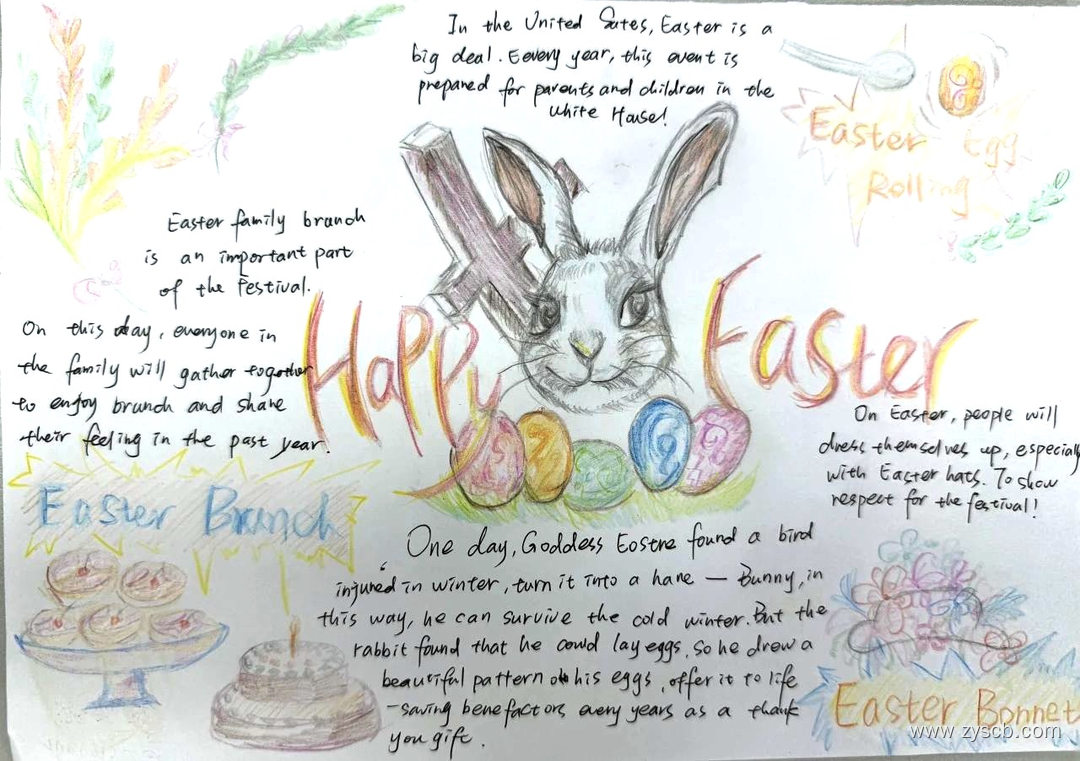 In the United Sates, Easter is a
big deal. Eevery year, this event is
prepared for parents and children in the
White House!
Easter Egg
Rolling
Easter family brunch
is an important part
of the festival.
On this day, everyone in
the family will gather together
to enjoy brunch and share
their feeling in the past year.
Happy Easter
On Easter, people will
dress themselves up, especially
with Easter hats. To show
respect for the festival!
Easter Brunch
One day, Goddess Eostre found a bird
injured in winter, turn it into a hare — Bunny, in
this way, he can survive the cold winter. But the
rabbit found that he could lay eggs, so he drew a
beautiful pattern on his eggs, offer it to life
-saving benefactors every years as a thank
you gift.
Easter Bonnet
www.zyscb.com